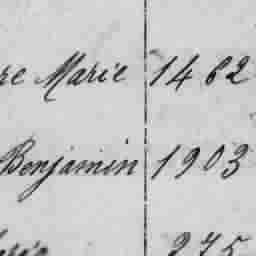 re Marie 1462
Benjamin 1903
275